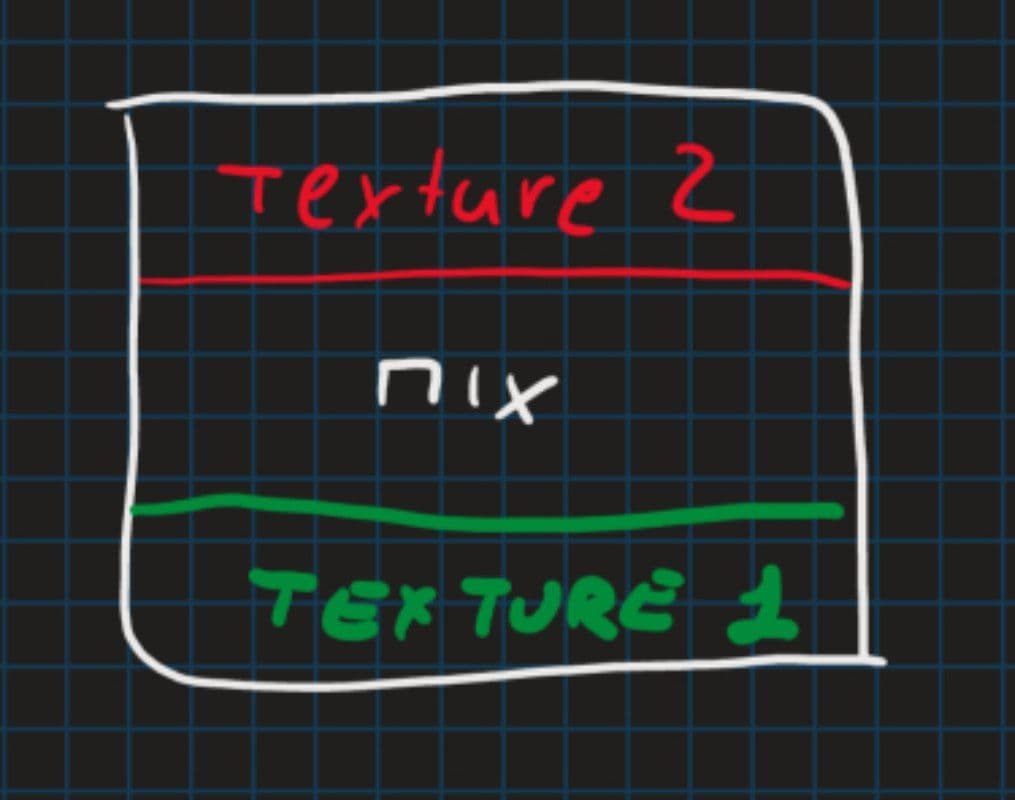 Texture 2
mix
TEXTURE 1